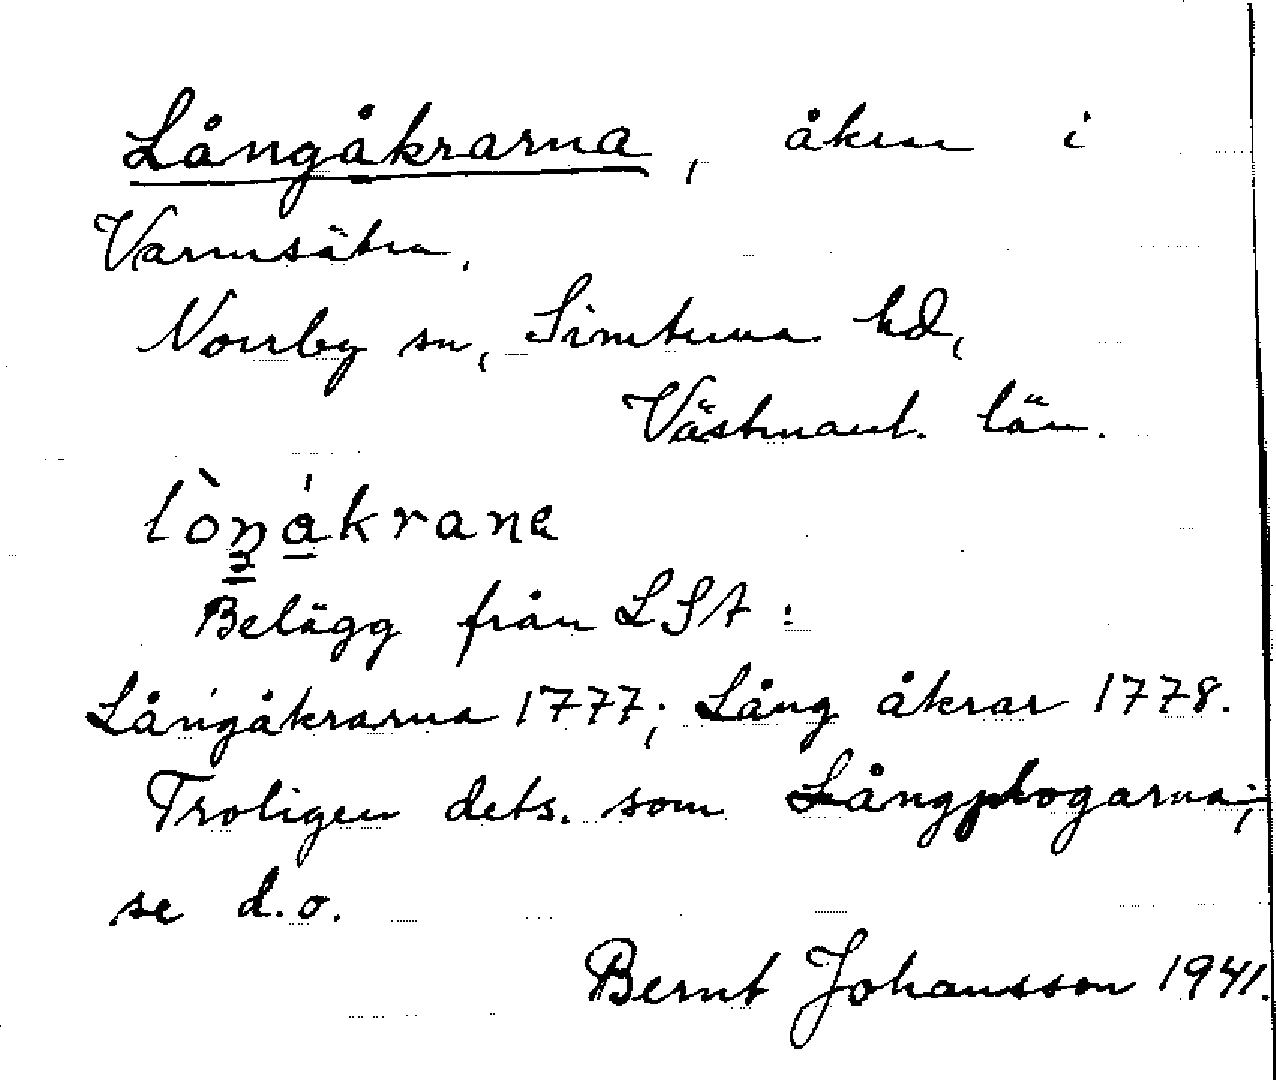 Långåkrarna, åkrar i
Varmsätra.
Norrby sn, Simtuna hd,
Västmanl. län.
lòŋákrana
Belägg från LSA:
Långåkrarna 1777; Lång åkrar 1778.
Troligen dets. som Långplogarna;
se d.o.
Bernt Johansson 1941.